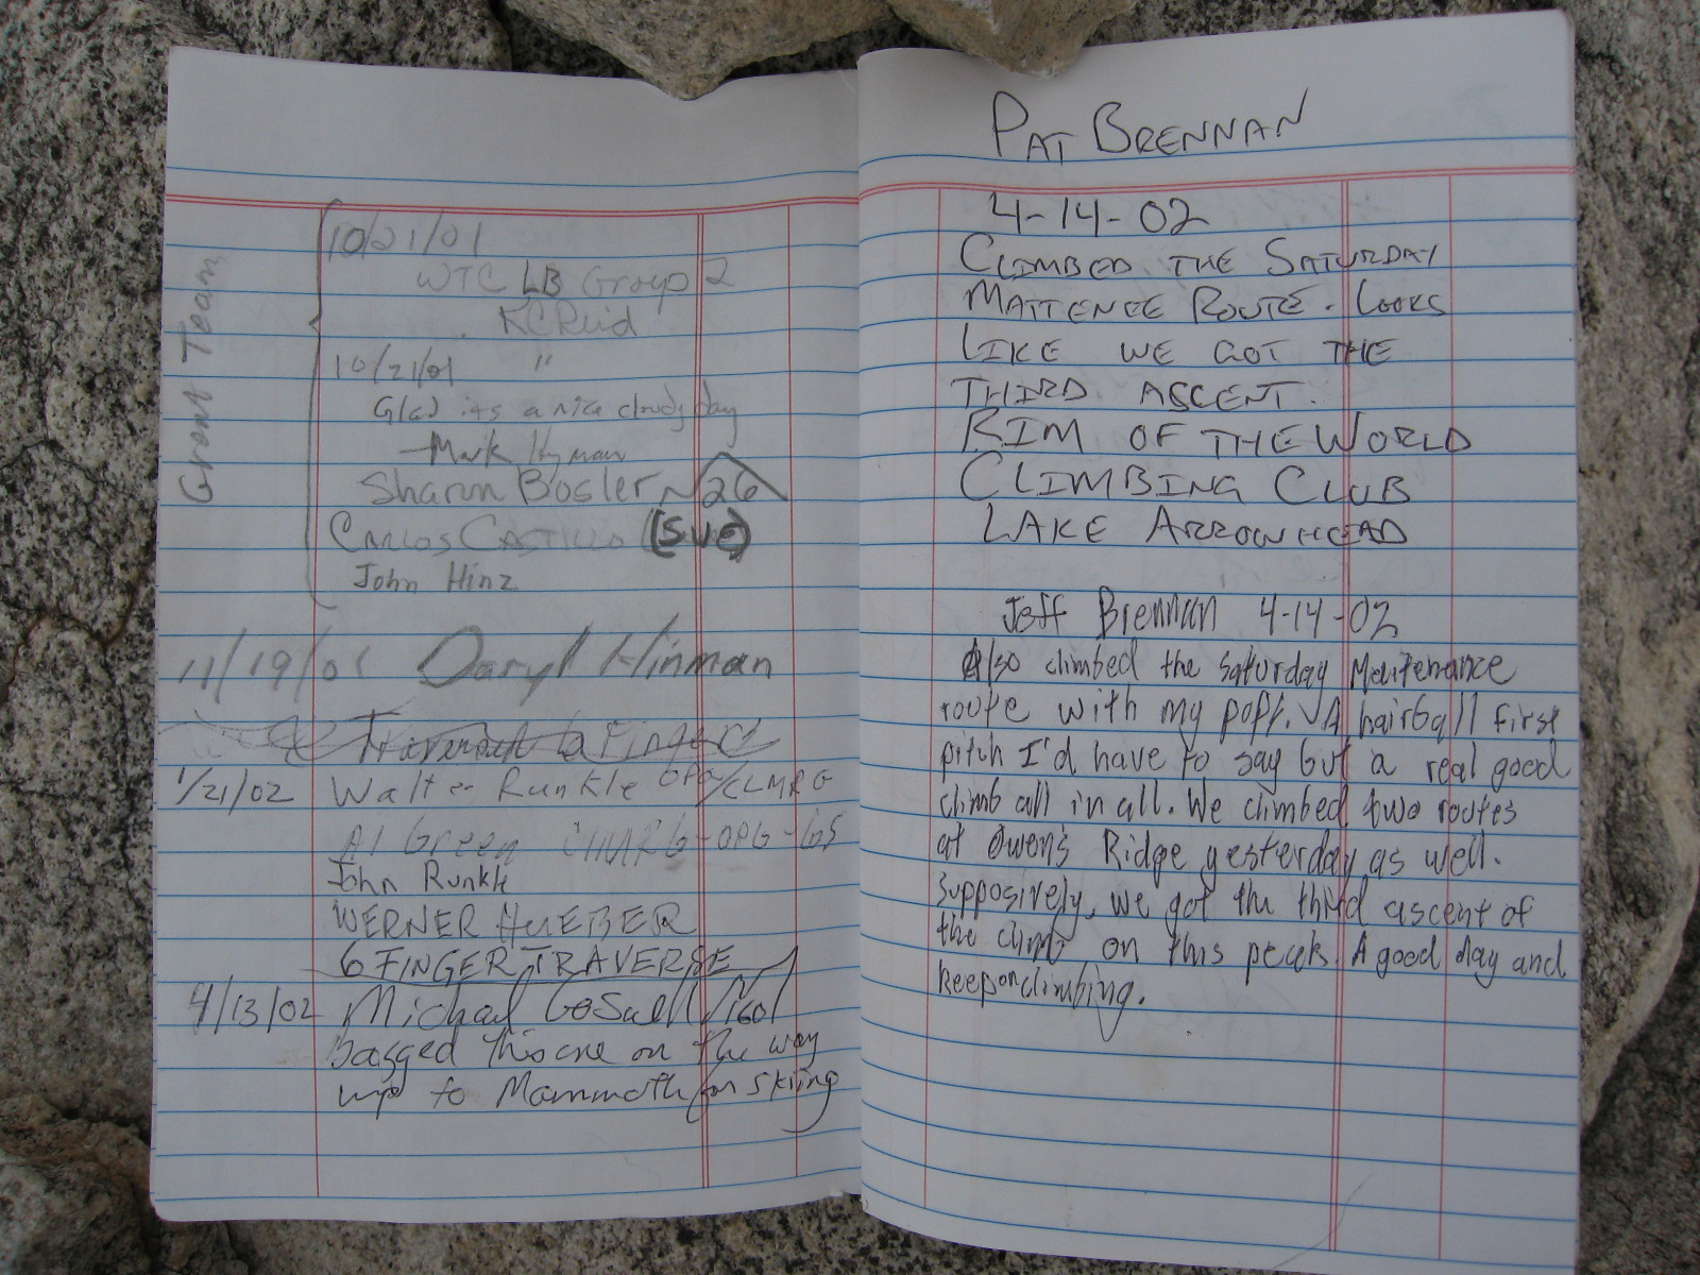 Grant Team
10/21/01
WTC LB Group 2
KC Reid
10/21/01 "
Glad its a nice cloudy day
- Mark Hyman
Sharon Bosler 26
CARLOS CASTILLO (SUE)
John Hinz
11/19/01 Daryl Hinman
6 Finger
1/21/02 Walter Runkle OPG/CLMRG
Al Green CLMRG-OPG-
John Runkle
WERNER HUEBER
6 FINGER TRAVERSE
4/13/02 Michael 160
Bagged this one on the way
up to Mammoth for skiing
PAT BRENNAN
4-14-02
CLIMBED THE SATURDAY
MATTENCE ROUTE. LOOKS
LIKE WE GOT THE
THIRD ASCENT.
RIM OF THE WORLD
CLIMBING CLUB
LAKE ARROWHEAD
Jeff Brennan 4-14-02
Also climbed the Saturday Maitenance
route with my pops. A hairball first
pitch I'd have to say but a real good
climb all in all. We climbed two routes
at Owens Ridge yesterday as well.
Supposively, we got the third ascent of
the climb on this peak. A good day and
keep on climbing.